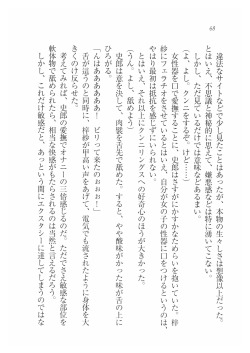 68
違法なサイトなどで少し見たことはあったが、本物の生々しさは想像以上だった。
とはいえ、不思議と神秘的に思えて、嫌悪感などは特に湧いてこない。
しかし、ただ見ているだけでは意味などあるまい。
(よ、よし、クンニをするぞ……けど……)
女性器を口で愛撫することに、史郎はさすがにいささかなためらいを抱いていた。梓
紗にフェラチオをさせているとはいえ、自分が女の子の性器に口をつけるというのは、
やはり最初は抵抗を感じずにいられない。
とはいえ、それ以上にクンニリングスへの好奇心のほうが大きかった。
(うん。よし、舐めよう)
史郎は意を決して、肉襞を舌先で舐めた。すると、やや酸味がかった味が舌の上に
ひろがる。
「んはああああああ! ビリって来たのぉぉぉ!」
舌が這うのと同時に、梓紗が甲高い声をあげて、電気でも流されたように身体を大
きくのけ反らせた。
考えてみれば、史郎の愛撫でオナニーの三倍感じるのだ。ただでさえ敏感な部位を
軟体物で舐められたのだから、相当な快感がもたらされるのは当然と言えるだろう。
しかし、これだけ敏感だと、あっという間にエクスタシーに達してしまうのではな